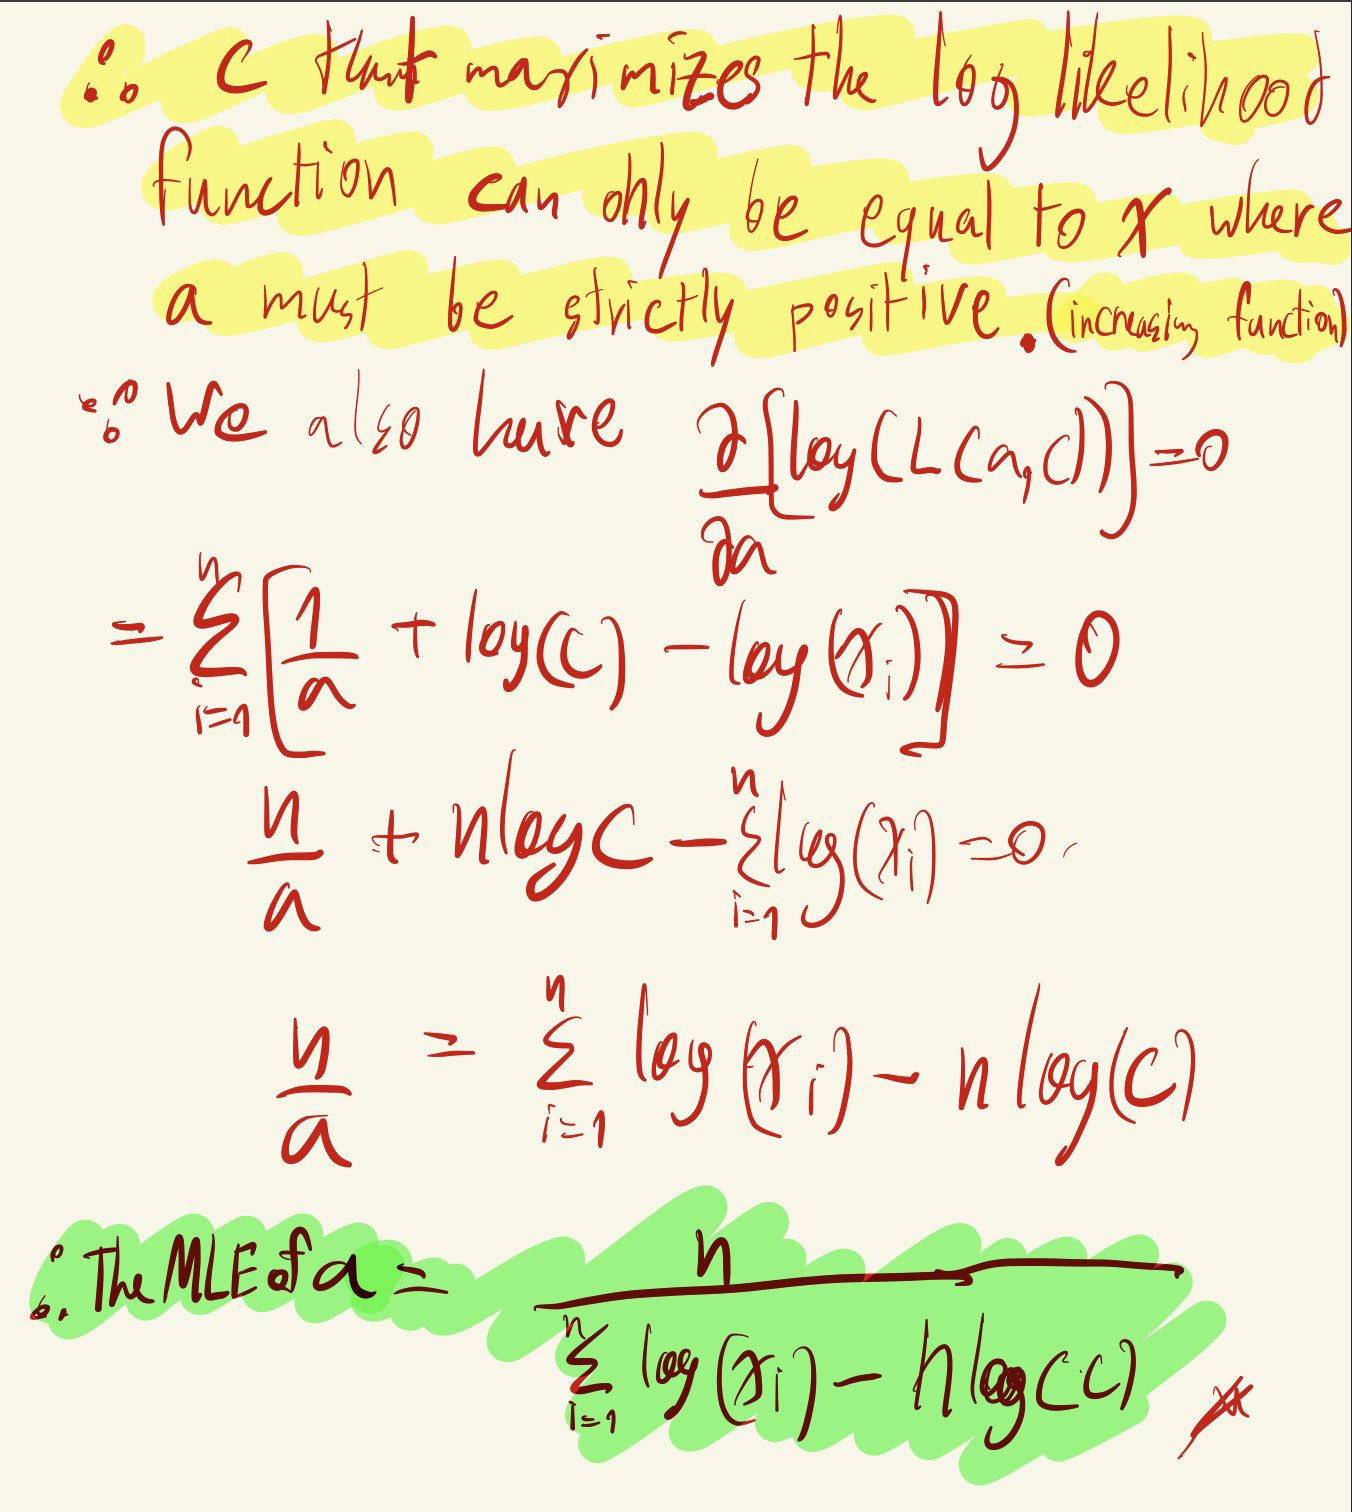 ∴ C that maximizes the log likelihood
function can only be equal to x where
a must be strictly positive. (increasing function)
∵ We also have ∂/∂a [log(L(a,c))] = 0
= Σ_{i=1}^{n} [1/a + log(c) − log(x_i)] = 0
n/a + n log c − Σ_{i=1}^{n} log(x_i) = 0.
n/a = Σ_{i=1}^{n} log(x_i) − n log(c)
∴ The MLE of a = n / (Σ_{i=1}^{n} log(x_i) − n log(c))